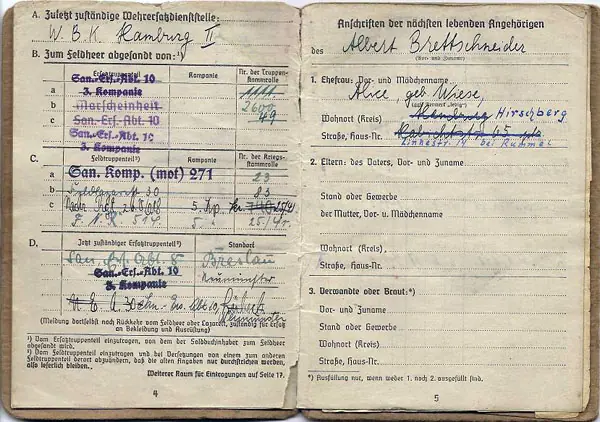 A. Zuletzt zuständige Wehrersatzdienststelle:
W. B. K. Hamburg II
B. Zum Feldheer abgesandt von:¹)
Ersatztruppenteil Kompanie Nr. der Truppenstammrolle
San.-Ers.-Abt. 10
3. Kompanie
a 1111
b Marscheinheit 2600
c San.-Ers.-Abt. 10 49
San.-Ers.-Abt. 10
3. Kompanie
C. Feldtruppenteil²) Kompanie Nr. der Kriegsstammrolle
a San. Komp. (mot) 271 23
b Feldlazarett 30 83
c 5. Kp.
25/41
D. Jetzt zuständiger Ersatztruppenteil³) Standort
San. Ers. Abt. 8 Breslau
San.-Ers.-Abt. 10 Neumünster
3. Kompanie
Lübeck
Neumünster
(Meldung dortselbst nach Rückkehr vom Feldheer oder Lazarett, zuständig für Ersatz an Bekleidung und Ausrüstung)
¹) Vom Ersatztruppenteil einzutragen, von dem der Soldbuchinhaber zum Feldheer abgesandt wird.
²) Vom Feldtruppenteil einzutragen und bei Versetzungen von einem zum anderen Feldtruppenteil derart abzuändern, daß die alten Angaben nur durchstrichen werden, also leserlich bleiben.
Weiterer Raum für Eintragungen auf Seite 17.
4
Anschriften der nächsten lebenden Angehörigen
des Albert Brettschneider
(Vor- und Zuname)
1. Ehefrau: Vor- und Mädchenname
Alice, geb. Wiese,
Wohnort (Kreis) Hamburg Hirschberg
Straße, Haus-Nr.
Linkestr. 14 bei Rummel
2. Eltern: des Vaters, Vor- und Zuname
Stand oder Gewerbe
der Mutter, Vor- u. Mädchenname
Wohnort (Kreis)
Straße, Haus-Nr.
3. Verwandte oder Braut:*)
Vor- und Zuname
Stand oder Gewerbe
Wohnort (Kreis)
Straße, Haus-Nr.
*) Ausfüllung nur, wenn weder 1. noch 2. ausgefüllt sind.
5